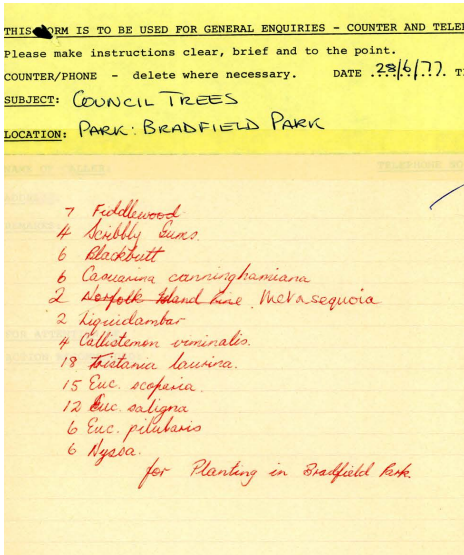 THIS FORM IS TO BE USED FOR GENERAL ENQUIRIES - COUNTER AND TELE
Please make instructions clear, brief and to the point.
COUNTER/PHONE - delete where necessary. DATE 28/6/77. T
SUBJECT: COUNCIL TREES
LOCATION: PARK: BRADFIELD PARK
TELEPHONE NO
7 Fiddlewood
4 Scribbly Gums.
6 Blackbutt
6 Casuarina cunninghamiana
2 Norfolk Island Pine. Metasequoia
2 Liquidambar
4 Callistemon viminalis.
18 Tristania laurina.
15 Euc. scoparia.
12 Euc. saligna
6 Euc. pilularis
6 Nyssa.
for Planting in Bradfield Park.